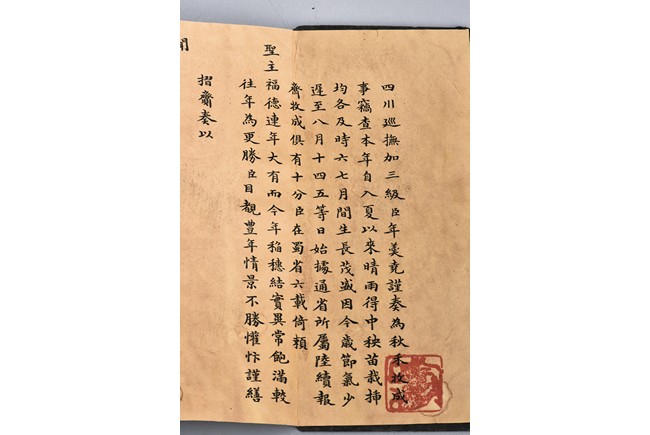 四川巡撫加三級臣年羹堯謹奏為秋禾收成
事竊查本年自入夏以來晴雨得中秧苗栽插
均各及時六七月間生長茂盛因今歲節氣少
遲至八月十四五等日始據通省所屬陸續報
齊收成俱有十分臣在蜀省六載倚賴
聖主福德連年大有而今年稲穗結實異常飽滿較
往年為更勝臣目覩豊年情景不勝懽忭謹繕
招齎奏以